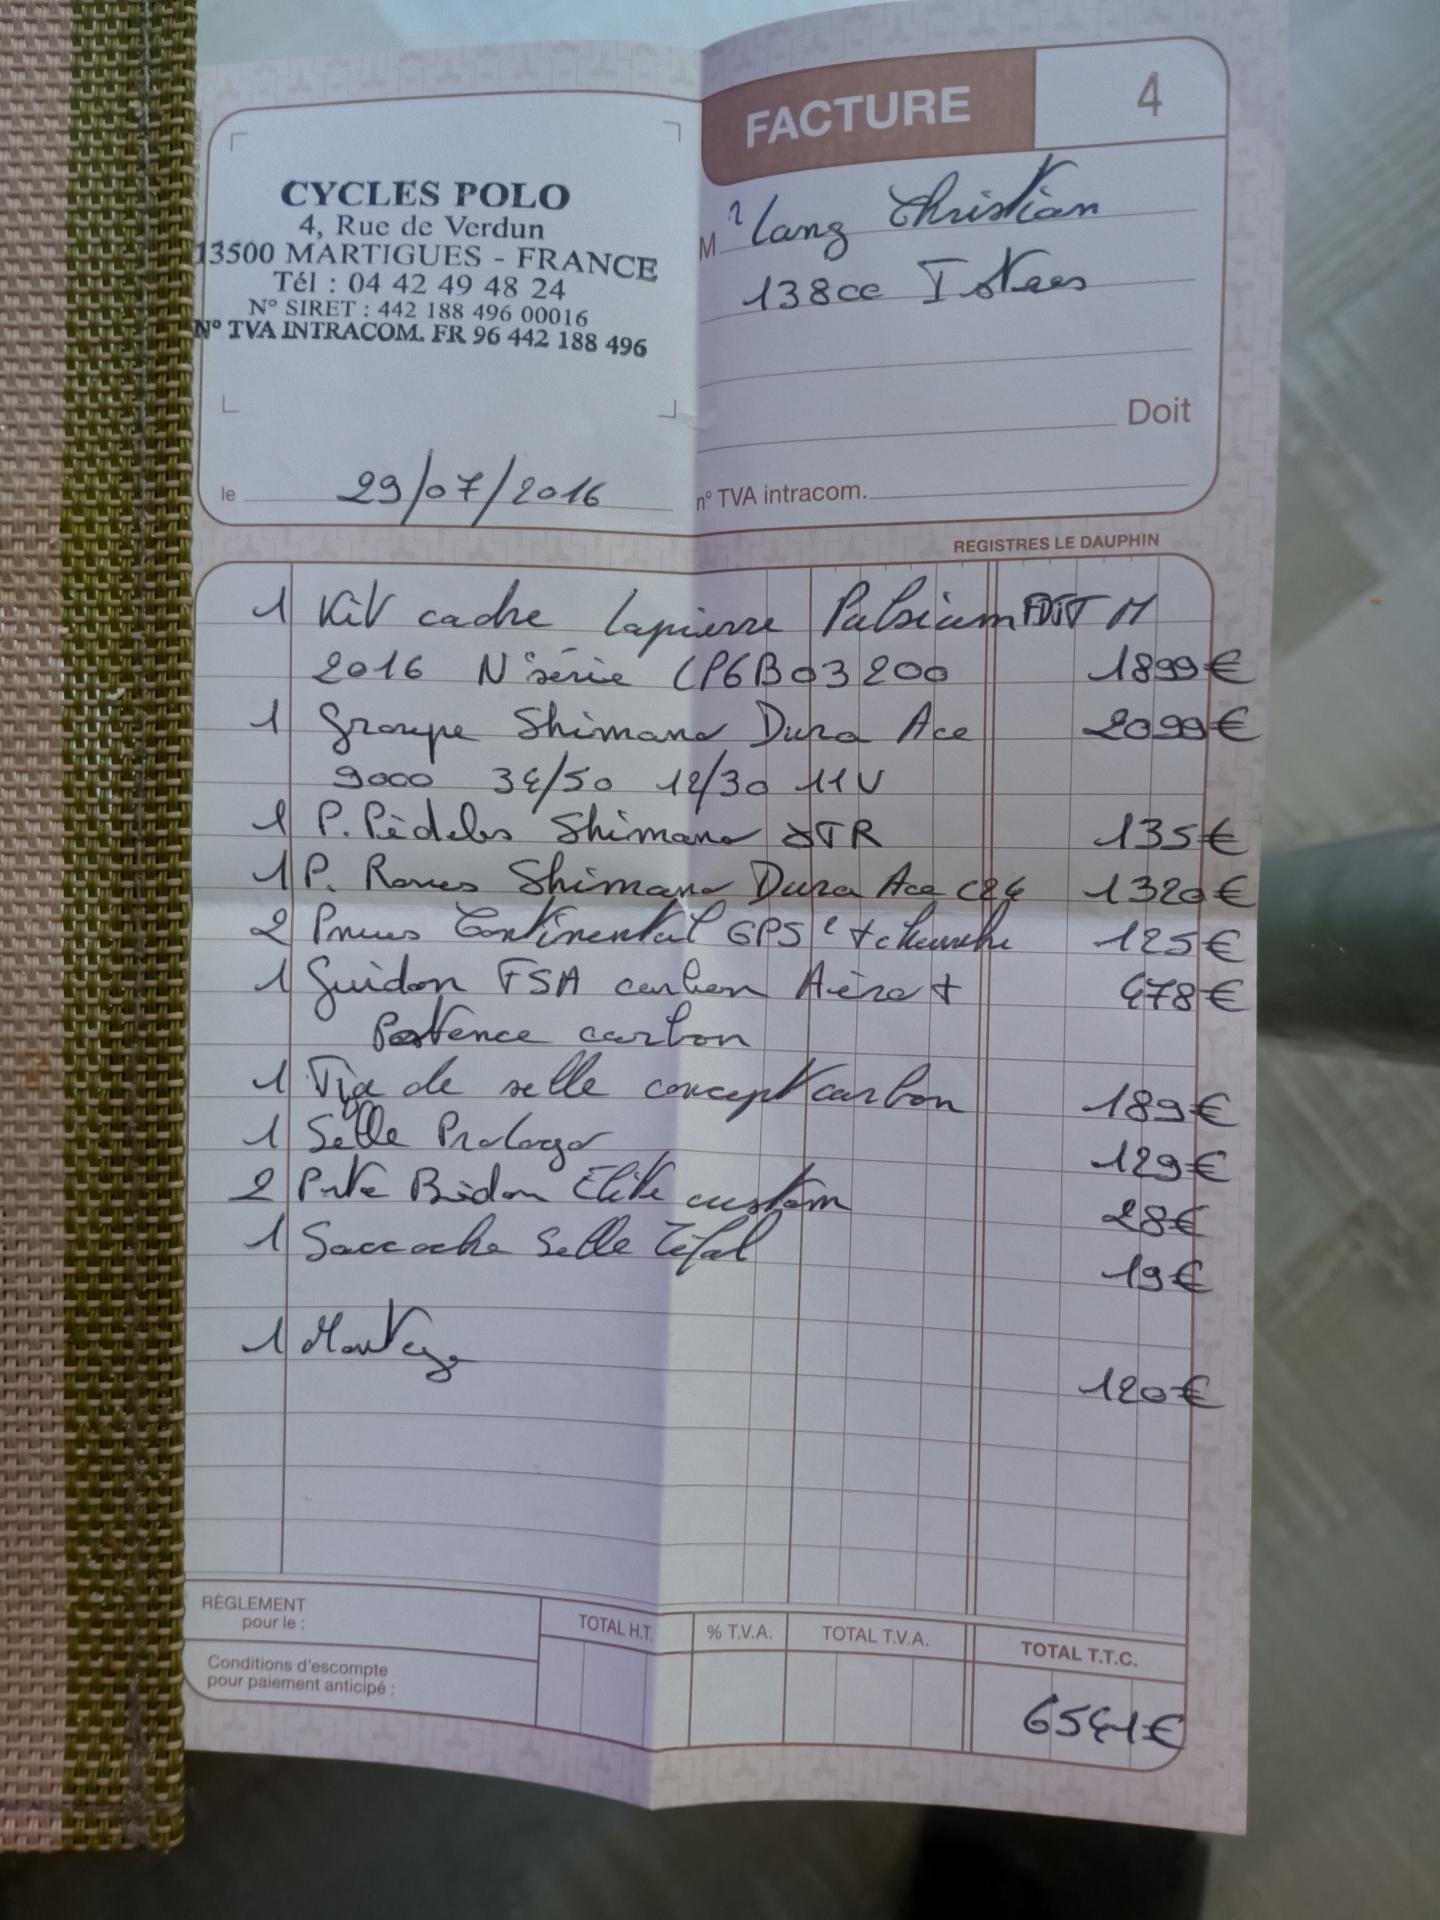 FACTURE 4
CYCLES POLO
4, Rue de Verdun
13500 MARTIGUES - FRANCE
Tél : 04 42 49 48 24
N° SIRET : 442 188 496 00016
N° TVA INTRACOM. FR 96 442 188 496
M r Lang Christian
13800 Istres
Doit
le 29/07/2016
n° TVA intracom.
REGISTRES LE DAUPHIN
1 Kit cadre Lapierre Pulsium FDJ M
2016 N°série LP6B03200 1899€
1 Groupe Shimano Dura Ace 2099€
9000 34/50 12/30 11V
1 P. Pédales Shimano XTR 135€
1 P. Roues Shimano Dura Ace C24 1320€
2 Pneus Continental GPS² + chambre 125€
1 Guidon FSA carbon Aéro + 478€
Potence carbon
1 Tige de selle concept carbon 189€
1 Selle Prologo 129€
2 Pte Bidon Elite custom 28€
1 Saccoche Selle Zéfal 19€
1 Montage 120€
RÈGLEMENT
pour le :
Conditions d'escompte
pour paiement anticipé :
TOTAL H.T. % T.V.A. TOTAL T.V.A. TOTAL T.T.C.
6541€